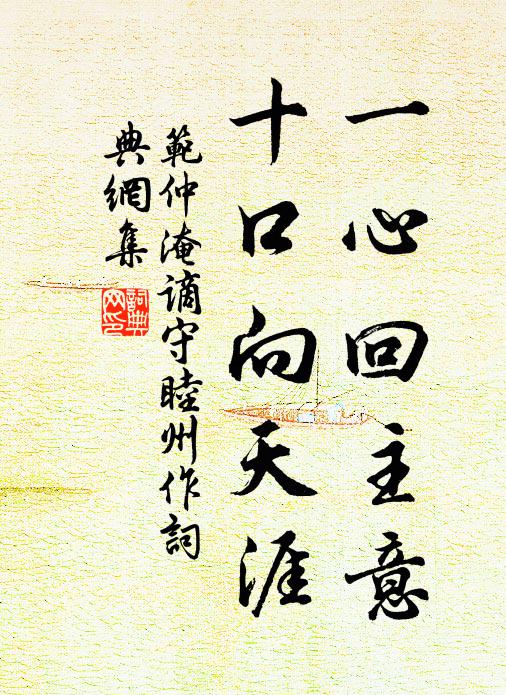 一心回主意
十口向天涯
範仲淹謫守睦州作詞
典網集
詞典
网印